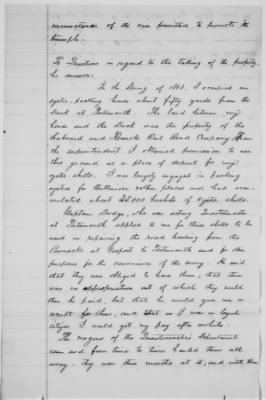 of the men permitted to promote its
triumph.
To Questions in regard to the taking of the property,
he answers.
In the Spring of 1863, I occupied an
oyster packing house about fifty yards from the
dock at Portsmouth. The land between my
house and the dock was the property of the
Seaboard and Roanoke Rail Road Company. From
the superintendent I obtained permission to use
this ground as a place of deposit for my
oyster shells. I was largely engaged in packing
oysters for Baltimore & other places and had accu-
mulated about 25,000 bushels of Oyster shells.
Captain Dodge, who was acting Quartermaster
at Portsmouth applied to me for these shells to be
used in repairing the road leading from the
to Portsmouth and for other
purposes for the convenience of the army. He said
that they was obliged to have them, that there
was no appropriation out of which they could
then be paid, but that he would give me a
receipt for them, and that as I was a loyal
citizen I would get my pay after awhile.
The wagons of the Quartermaster's Department
came and from time to time hauled them all
away. They were three months at it, and with them